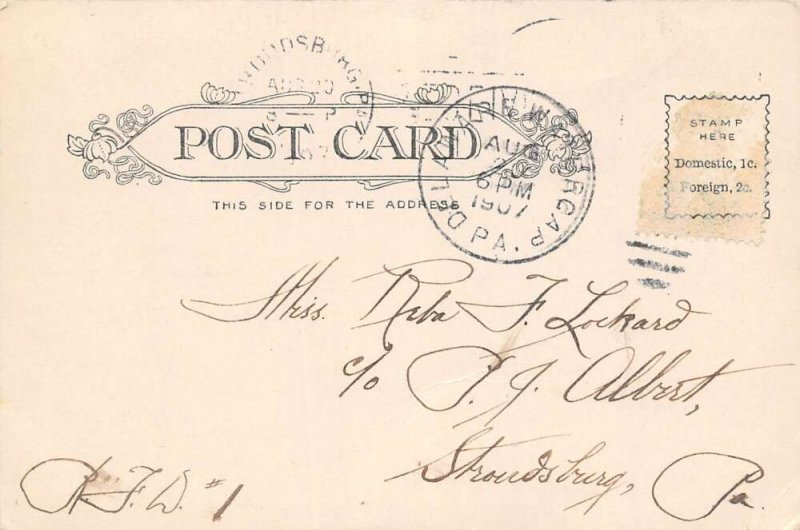 POST CARD
THIS SIDE FOR THE ADDRESS
STAMP
HERE
Domestic, 1c.
Foreign, 2c.
DELAWARE WATER GAP, PA.
AUG
6 PM
1907
Miss. Reba F. Lockard
c/o P. J. Albert,
Stroudsburg, Pa
R. F. D. #1